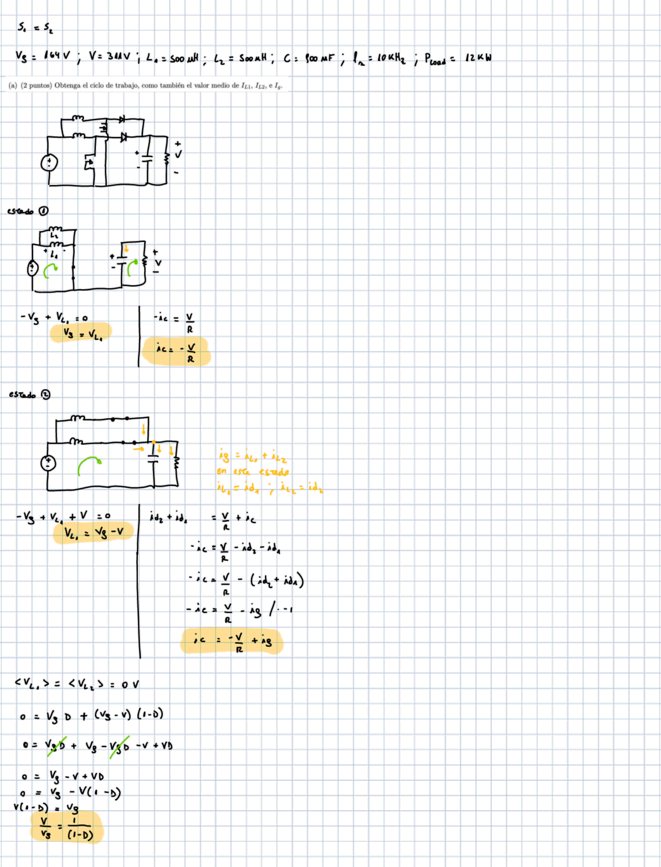 S₁ = S₂
Vg = 164V ; V = 311V ; L₁ = 500 μH ; L₂ = 500 μH ; C = 900 μF ; fₛ = 10 KHz ; Pload = 12 KW
(a) (2 puntos) Obtenga el ciclo de trabajo, como también el valor medio de IL1, IL2, e Ig.
+
V
-
+
-
estado ①
L₂
+ L₁ -
+
-
+
V
-
-Vg + VL₁ = 0
Vg = VL₁
-ic = V/R
ic = - V/R
estado ②
ig = iL₁ + iL₂
en este estado
iL₁ = id₁ ; iL₂ = id₂
-Vg + VL₁ + V = 0
VL₁ = Vg - V
id₂ + id₁ = V/R + ic
-ic = V/R - id₂ - id₁
-ic = V/R - (id₂ + id₁)
-ic = V/R - ig / · -1
ic = -V/R + ig
<VL₁> = <VL₂> = 0 V
0 = Vg D + (Vg - V) (1-D)
0 = VgD + Vg - VgD - V + VD
0 = Vg - V + VD
0 = Vg - V(1-D)
V(1-D) = Vg
V/Vg = 1/(1-D)